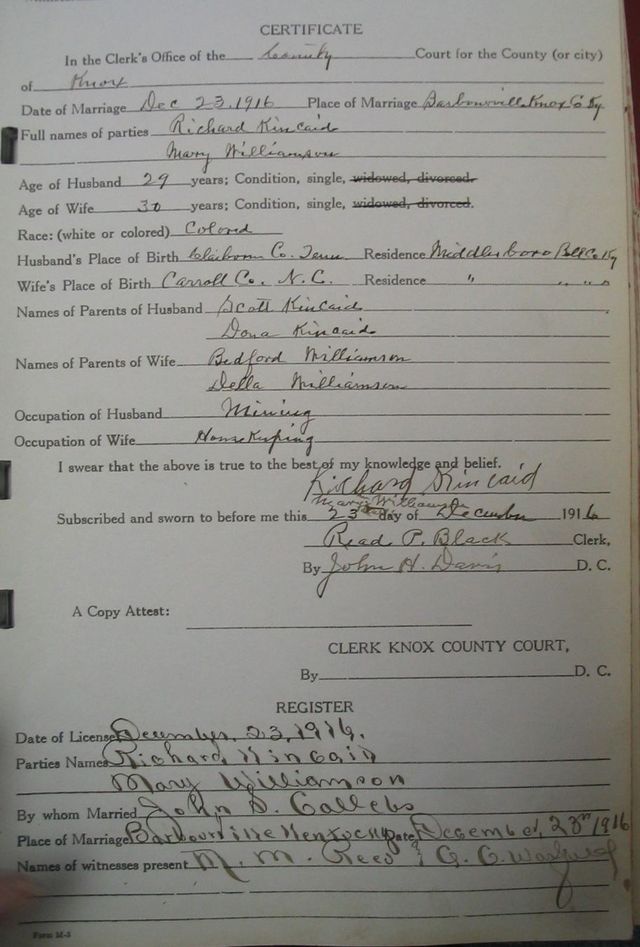 CERTIFICATE
In the Clerk's Office of the County Court for the County (or city)
of Knox
Date of Marriage Dec 23, 1916 Place of Marriage Barbourville Knox Co Ky.
Full names of parties Richard Kincaid
Mary Williamson
Age of Husband 29 years; Condition, single, widowed, divorced.
Age of Wife 30 years; Condition, single, widowed, divorced.
Race: (white or colored) Colored
Husband's Place of Birth Claiborn Co. Tenn Residence Middlesboro Bell Co Ky
Wife's Place of Birth Carroll Co. N.C. Residence " " " "
Names of Parents of Husband Scott Kincaid
Dona Kincaid
Names of Parents of Wife Bedford Williamson
Della Williamson
Occupation of Husband Mining
Occupation of Wife Housekeeping
I swear that the above is true to the best of my knowledge and belief.
Richard Kincaid
Mary Williamson
Subscribed and sworn to before me this 23 day of December 1916
Read P. Black Clerk,
By John H. Davis D. C.
A Copy Attest:
CLERK KNOX COUNTY COURT,
By D. C.
REGISTER
Date of License December, 23, 1916.
Parties Names Richard Kincaid
Mary Williamson
By whom Married John S. Callebs
Place of Marriage Barbourville Kentucky Date December, 23rd 1916
Names of witnesses present M. M. Reed & G. C.
Form M-3